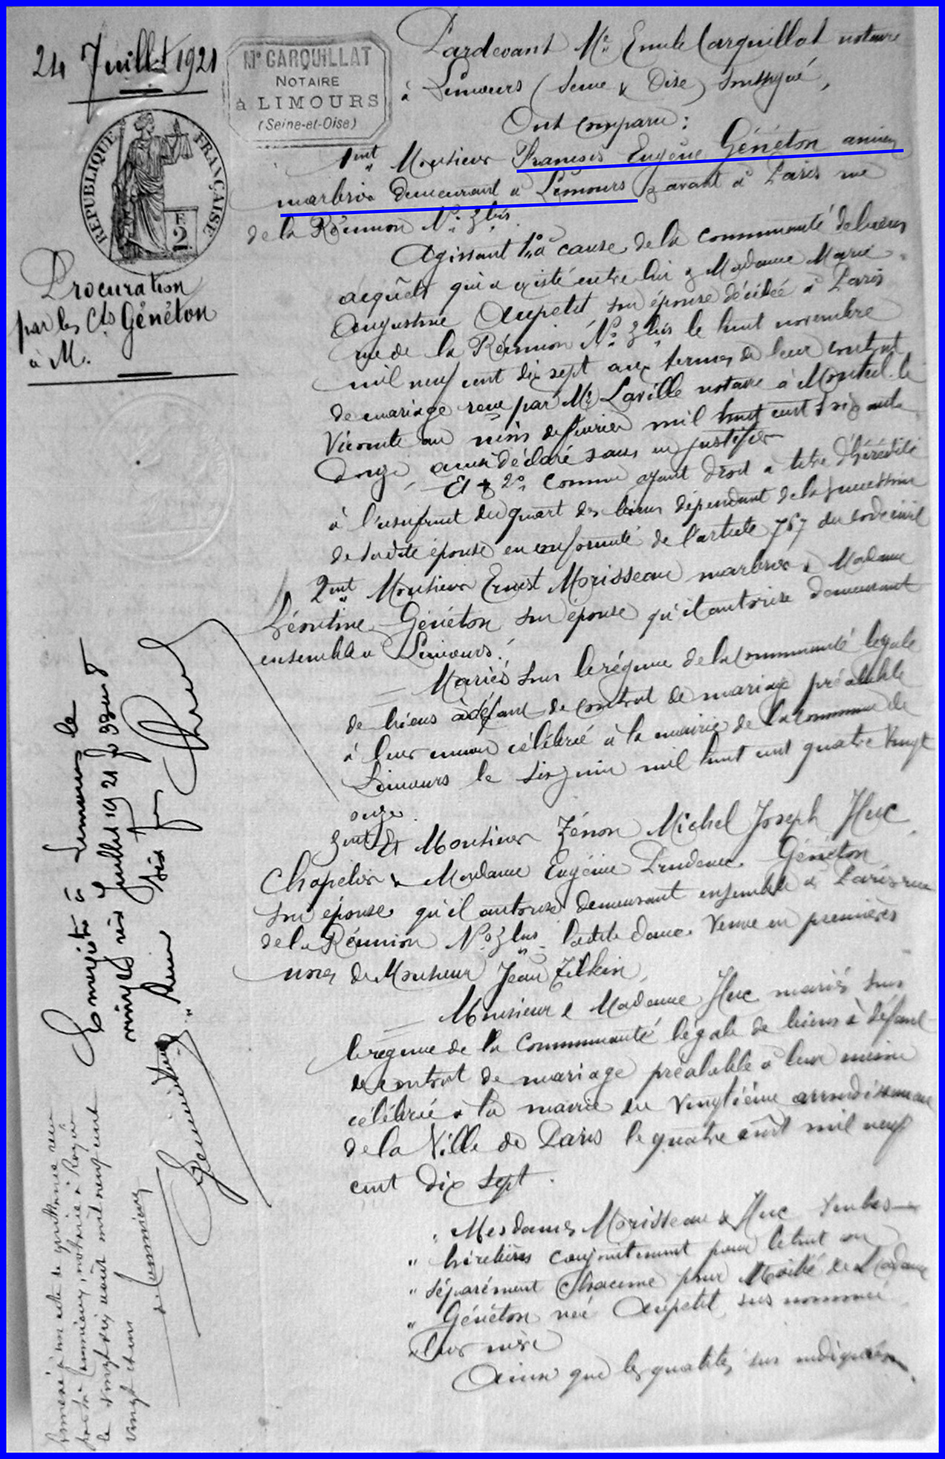 24 Juillet 1921
Me GARQUILLAT
NOTAIRE
à LIMOURS
(Seine-et-Oise)
RÉPUBLIQUE FRANÇAISE
2
Procuration
par les Cts Généton
à M.
Pardevant Me Emile Garquillat notaire
à Limours (Seine & Oise) soussigné,
Ont comparu :
1ent Monsieur François Eugène Généton ancien
marbrier demeurant à Limours & avant à Paris rue
de la Réunion No 3 bis.
Agissant 1o à cause de la communauté de biens
acquêts qui a existé entre lui & Madame Marie
Augustine Aupetit son épouse décédée à Paris
rue de la Réunion No 3 bis le huit novembre
mil neuf cent dix sept aux termes de leur contrat
de mariage reçu par Me Laville notaire à Monteil le
Vicomte au mois de février mil huit cent soixante
onze, ainsi déclaré sans en justifier
Et 2o comme ayant droit à titre d'hérédité
à l'usufruit du quart des biens dépendant de la succession
de sadite épouse en conformité de l'article 767 du code civil
2ent Monsieur Ernest Morisseau marbrier & Madame
Léontine Généton son épouse qu'il autorise demeurant
ensemble à Limours.
Mariés sous le régime de la communauté légale
de biens à défaut de contrat de mariage préalable
à leur union célébrée à la mairie de la commune de
Limours le six juin mil huit cent quatre vingt
onze.
3ent Et Monsieur Zénon Michel Joseph Huc
Chapelier & Madame Eugénie Prudence Généton
son épouse qu'il autorise demeurant ensemble à Paris rue
de la Réunion No 3 bis ladite dame Veuve en premières
noces de Monsieur Jean Zilkin.
Monsieur & Madame Huc mariés sous
le régime de la communauté légale de biens à défaut
de contrat de mariage préalable à leur union
célébrée à la mairie du Vingtième arrondissement
de la Ville de Paris le quatre août mil neuf
cent dix sept.
" Mesdames Morisseau & Huc seules
" héritières conjointement pour le tout ou
" séparément chacune pour Moitié de Madame
" Généton née Aupetit sus nommée
" leur mère
Ainsi que les qualités sus indiquées
Enregistré à Limours le
vingt six Juillet 1921
Reçu six frs
Annexé à un acte de quittance reçu
par Me notaire à
le vingt six août mil neuf cent
vingt et un